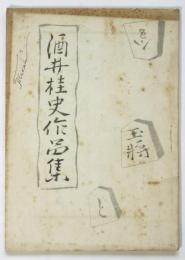 酒井桂史作品集
玉將
と